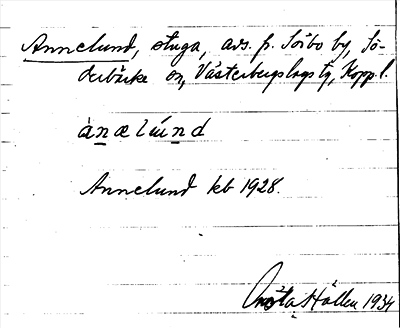 Annelund, stuga, avs. fr. Sörbo by, Sö-
derbärke sn, Västerbergslags tg, Koppl.
ànælúnd
Annelund kb 1928.
Hållen 1934